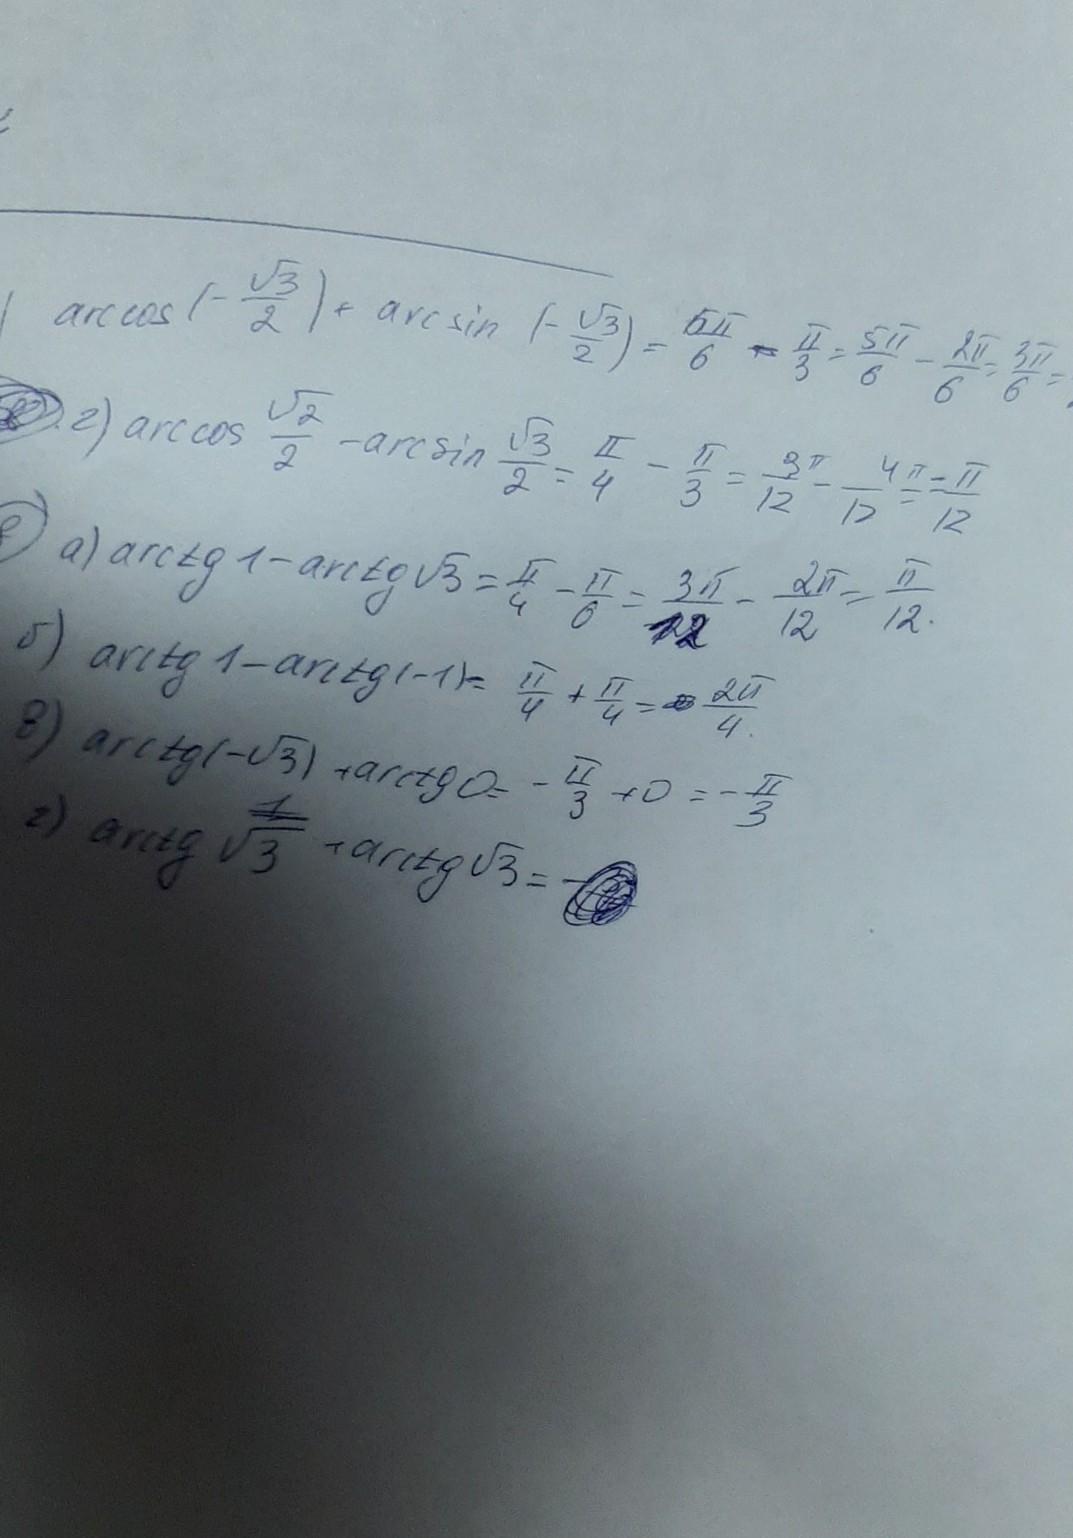 arccos (-√3/2) + arcsin (-√3/2) = 5π/6 - π/3 = 5π/6 - 2π/6 = 3π/6 =
г) arccos √2/2 - arcsin √3/2 = π/4 - π/3 = 3π/12 - 4π/12 = -π/12
а) arctg 1 - arctg √3 = π/4 - π/6 = 3π/12 - 2π/12 = π/12.
б) arctg 1 - arctg(-1) = π/4 + π/4 = 2π/4.
в) arctg(-√3) + arctg 0 = -π/3 + 0 = -π/3
г) arctg 1/√3 + arctg √3 = -